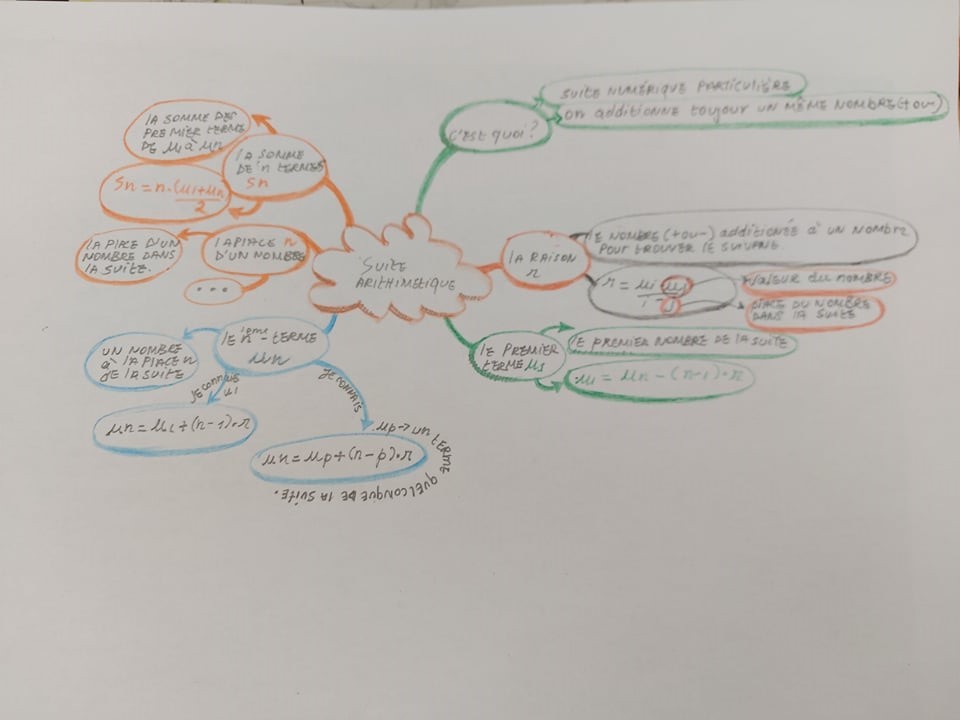 SUITE
ARITHMETIQUE
C'EST QUOI?
SUITE NUMÉRIQUE PARTICULIÈRE
On additionne toujour UN MÊME NOMBRE (+ou-)
LA RAISON
r
LE NOMBRE (+ou-) additionée à un NOMBRE
POUR TROUVER LE SUIVANT.
r = ui - uj
i - j
VALEUR DU NOMBRE
PLACE DU NOMBRE
DANS LA SUITE
LE PREMIER
TERME u1
LE PREMIER NOMBRE DE LA SUITE
u1 = un - (n-1)·r
LE nième - TERME
un
UN NOMBRE
à LA PLACE n
DE LA SUITE
JE CONNAIS
u1
un = u1 + (n-1)·r
JE CONNAIS
up → un TERME QUELCONQUE DE LA SUITE.
un = up + (n-p)·r
LA PLACE n
D'UN NOMBRE
LA PLACE D'UN
NOMBRE DANS
LA SUITE.
...
LA SOMME
DE n TERMES
Sn
LA SOMME DES
PREMIER TERME
DE u1 à un
Sn = n·(u1+un)
2